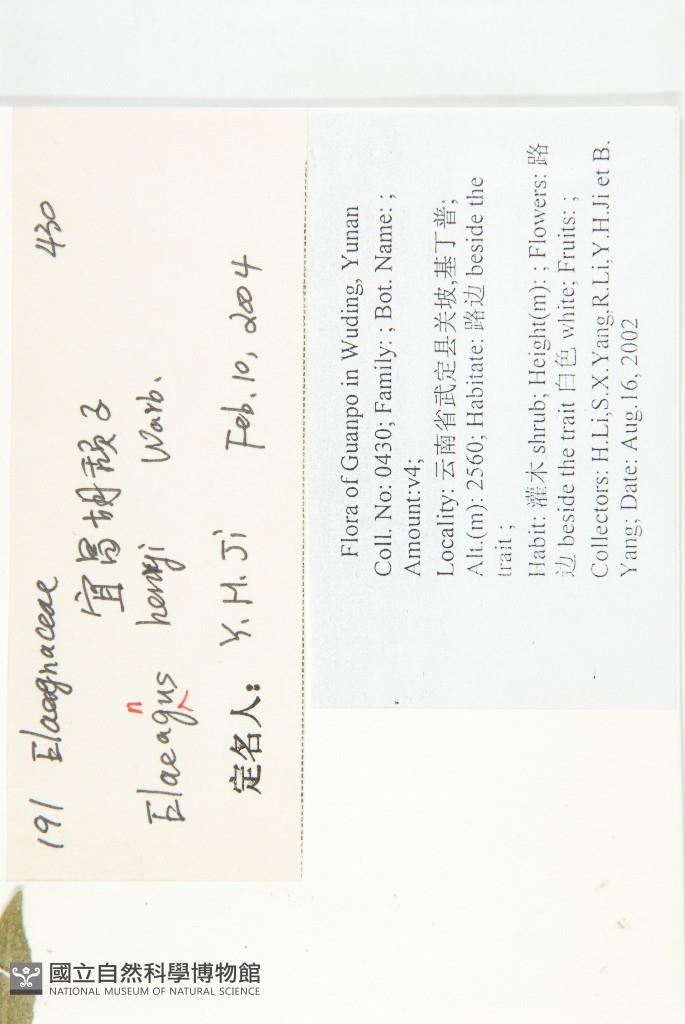 191 Elaeagnaceae 430
宜昌胡颓子
Elaeagus henryi Warb.
n
定名人: Y.H.Ji Feb.10, 2004
Flora of Guanpo in Wuding, Yunan
Coll. No: 0430; Family: ; Bot. Name: ;
Amount:v4;
Locality: 云南省武定县关坡,基丁普;
Alt.(m): 2560; Habitate: 路边 beside the
trait ;
Habit: 灌木 shrub; Height(m): ; Flowers: 路
边 beside the trait 白色 white; Fruits: ;
Collectors: H.Li,S.X.Yang,R.Li,Y.H.Ji et B.
Yang; Date: Aug.16, 2002
國立自然科學博物館
NATIONAL MUSEUM OF NATURAL SCIENCE